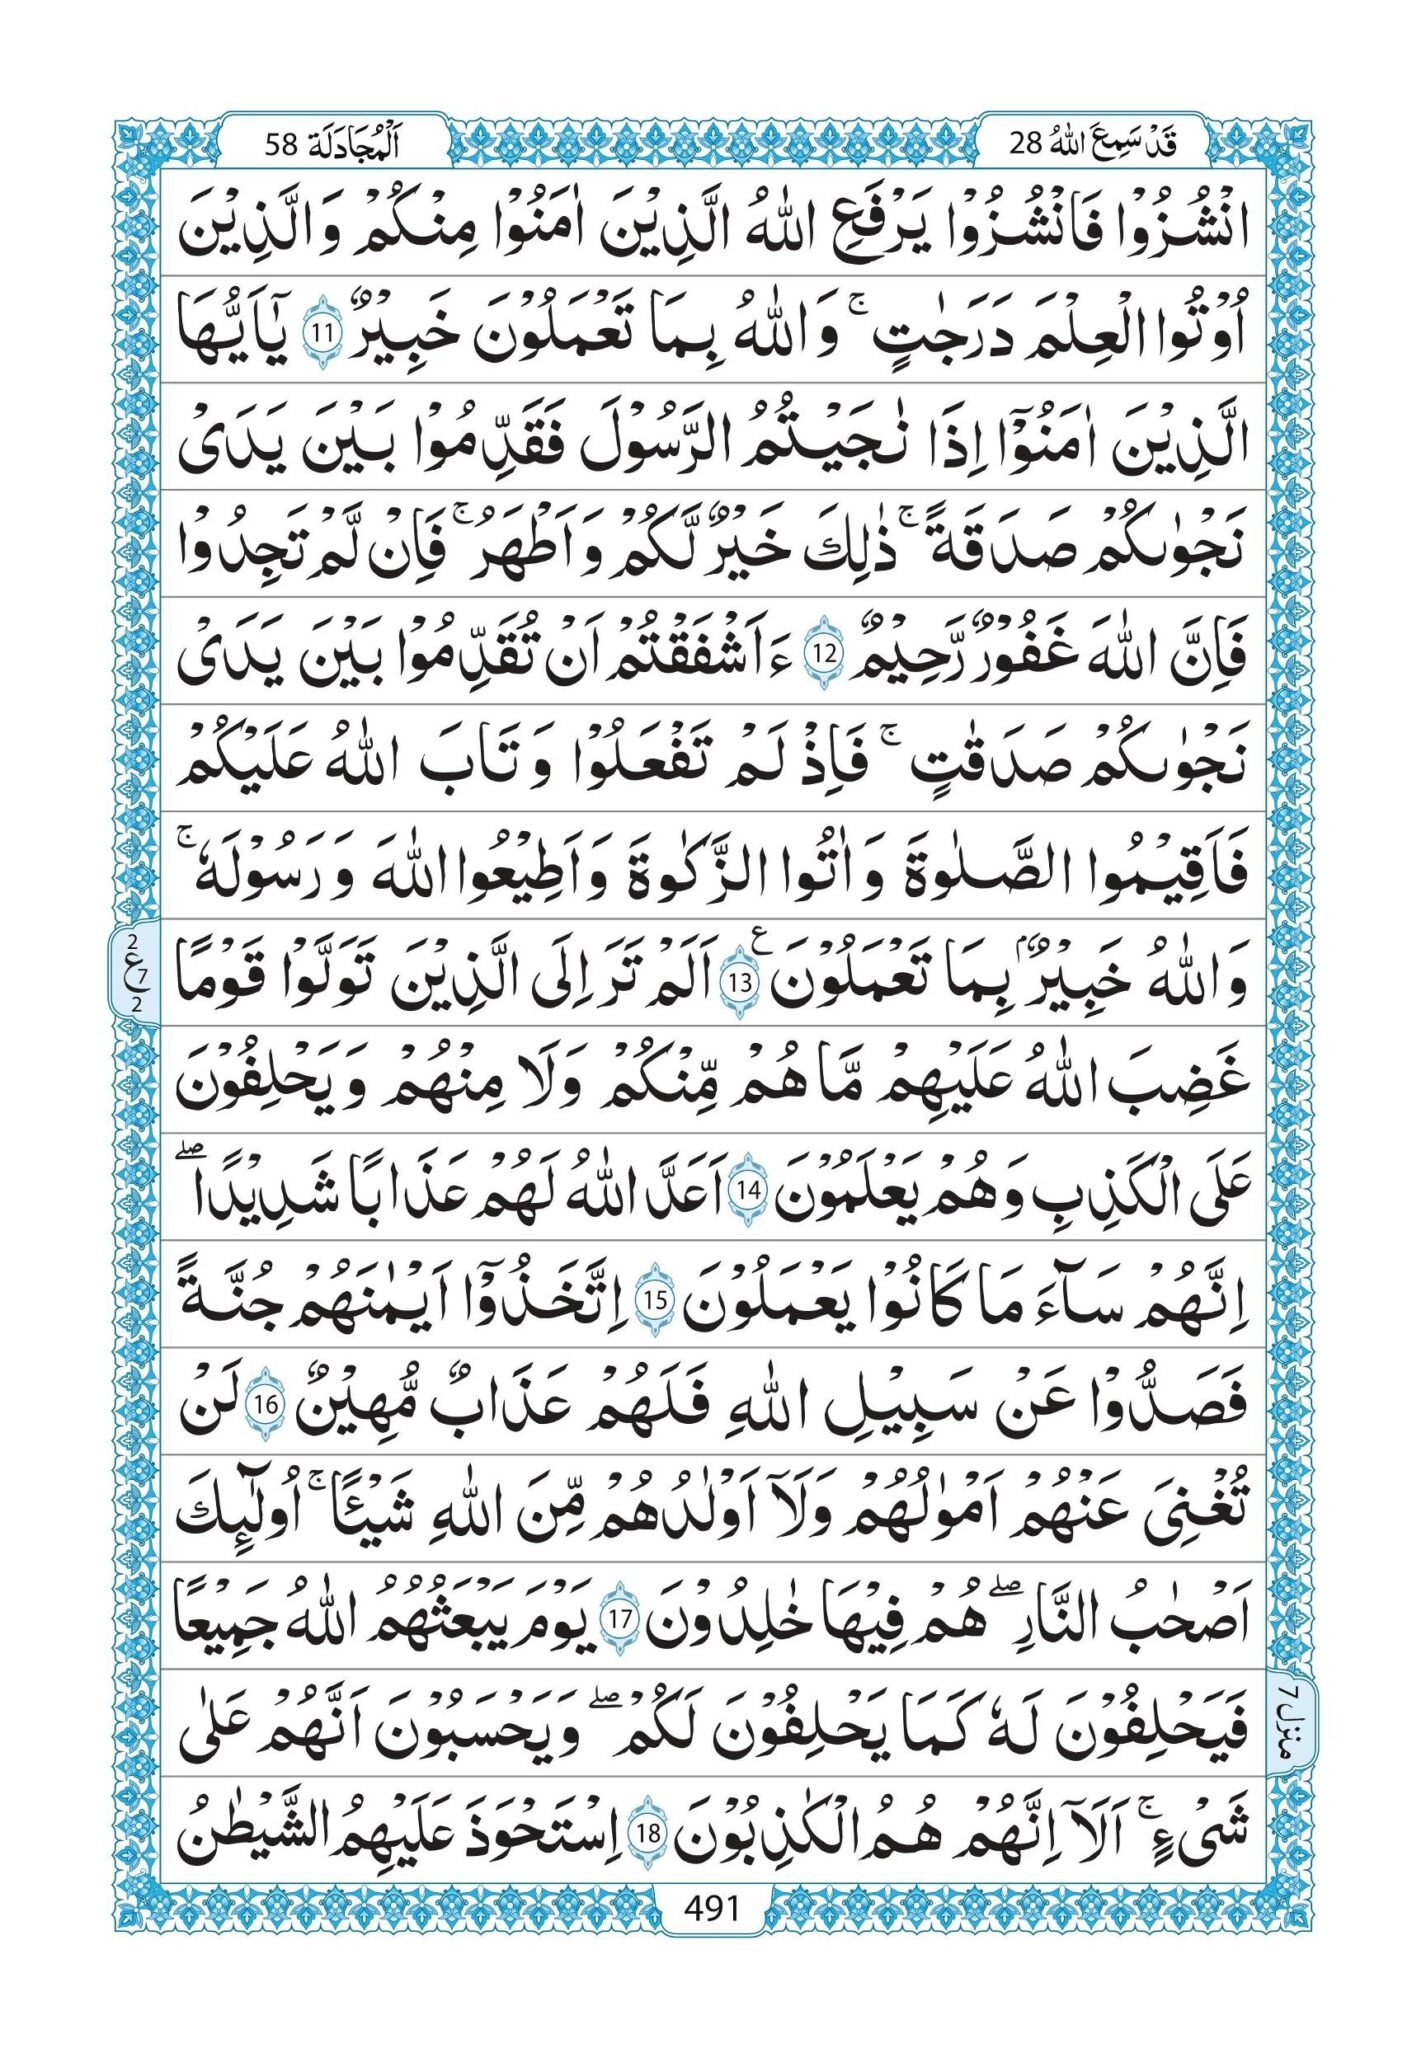 قَدْ سَمِعَ اللّٰهُ 28
اَلْمُجَادَلَة 58
انْشُزُوْا فَانْشُزُوْا يَرْفَعِ اللّٰهُ الَّذِيْنَ اٰمَنُوْا مِنْكُمْ وَالَّذِيْنَ
اُوْتُوا الْعِلْمَ دَرَجٰتٍ ۚ وَاللّٰهُ بِمَا تَعْمَلُوْنَ خَبِيْرٌ 11 يٰٓاَيُّهَا
الَّذِيْنَ اٰمَنُوْٓا اِذَا نٰجَيْتُمُ الرَّسُوْلَ فَقَدِّمُوْا بَيْنَ يَدَىْ
نَجْوٰىكُمْ صَدَقَةً ۚ ذٰلِكَ خَيْرٌ لَّكُمْ وَاَطْهَرُ ۚ فَاِنْ لَّمْ تَجِدُوْا
فَاِنَّ اللّٰهَ غَفُوْرٌ رَّحِيْمٌ 12 ءَاَشْفَقْتُمْ اَنْ تُقَدِّمُوْا بَيْنَ يَدَىْ
نَجْوٰىكُمْ صَدَقٰتٍ ۚ فَاِذْ لَمْ تَفْعَلُوْا وَتَابَ اللّٰهُ عَلَيْكُمْ
فَاَقِيْمُوا الصَّلٰوةَ وَاٰتُوا الزَّكٰوةَ وَاَطِيْعُوا اللّٰهَ وَرَسُوْلَهٗ ۚ
وَاللّٰهُ خَبِيْرٌۢ بِمَا تَعْمَلُوْنَ 13 ع اَلَمْ تَرَ اِلَى الَّذِيْنَ تَوَلَّوْا قَوْمًا
2
ع 7
2
غَضِبَ اللّٰهُ عَلَيْهِمْ مَّا هُمْ مِّنْكُمْ وَلَا مِنْهُمْ وَيَحْلِفُوْنَ
عَلَى الْكَذِبِ وَهُمْ يَعْلَمُوْنَ 14 اَعَدَّ اللّٰهُ لَهُمْ عَذَابًا شَدِيْدًا ۖ
اِنَّهُمْ سَآءَ مَا كَانُوْا يَعْمَلُوْنَ 15 اِتَّخَذُوْٓا اَيْمٰنَهُمْ جُنَّةً
فَصَدُّوْا عَنْ سَبِيْلِ اللّٰهِ فَلَهُمْ عَذَابٌ مُّهِيْنٌ 16 لَنْ
تُغْنِىَ عَنْهُمْ اَمْوٰلُهُمْ وَلَآ اَوْلٰدُهُمْ مِّنَ اللّٰهِ شَيْـًٔا ۚ اُولٰٓئِكَ
اَصْحٰبُ النَّارِ ۖ هُمْ فِيْهَا خٰلِدُوْنَ 17 يَوْمَ يَبْعَثُهُمُ اللّٰهُ جَمِيْعًا
فَيَحْلِفُوْنَ لَهٗ كَمَا يَحْلِفُوْنَ لَكُمْ ۖ وَيَحْسَبُوْنَ اَنَّهُمْ عَلٰى
منزل 7
شَىْءٍ ۚ اَلَآ اِنَّهُمْ هُمُ الْكٰذِبُوْنَ 18 اِسْتَحْوَذَ عَلَيْهِمُ الشَّيْطٰنُ
491